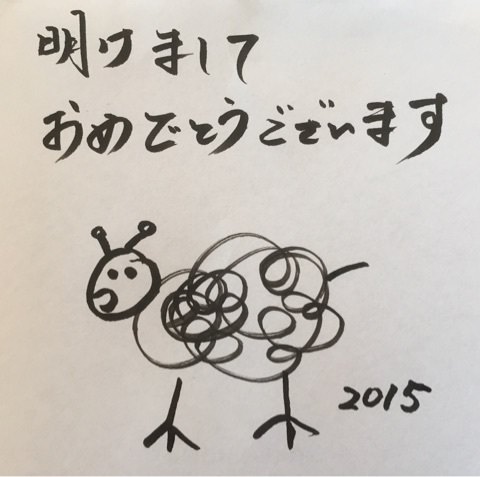 明けまして
おめでとうございます
2015